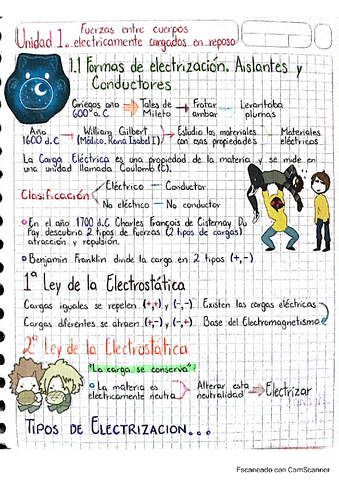 Fuerzas entre cuerpos
Unidad 1. electricamente cargados en reposo
1.1 Formas de electrización. Aislantes y
Conductores
Griegos año → Tales de → Frotar → Levantaba
600 a.C Mileto ambar plumas
Año → William Gilbert → Estudio los materiales → Materiales
1600 d.C (Médico, Reina Isabel I) con esas propiedades eléctricos
La Carga Eléctrica es una propiedad de la materia y se mide en
una unidad llamada Coulomb (C).
Clasificación
Eléctrico — Conductor
No eléctrico — No conductor
En el año 1700 d.C Charles François de Cisternay Du
Fay descubrio 2 tipos de fuerzas (2 tipos de cargas)
atracción y repulsión.
Benjamin Franklin divide la carga en 2 tipos (+,-)
1ª Ley de la Electrostática
Cargas iguales se repelen (+,+) y (-,-) Existen las cargas eléctricas
Cargas diferentes se atraen (+,-) y (-,+) Base del Electromagnetismo
2ª Ley de la Electrostática
"La carga se conserva"
La materia es → Alterar esta → Electrizar
electricamente neutra neutralidad
TIPOS DE ELECTRIZACION...
Escaneado con CamScanner